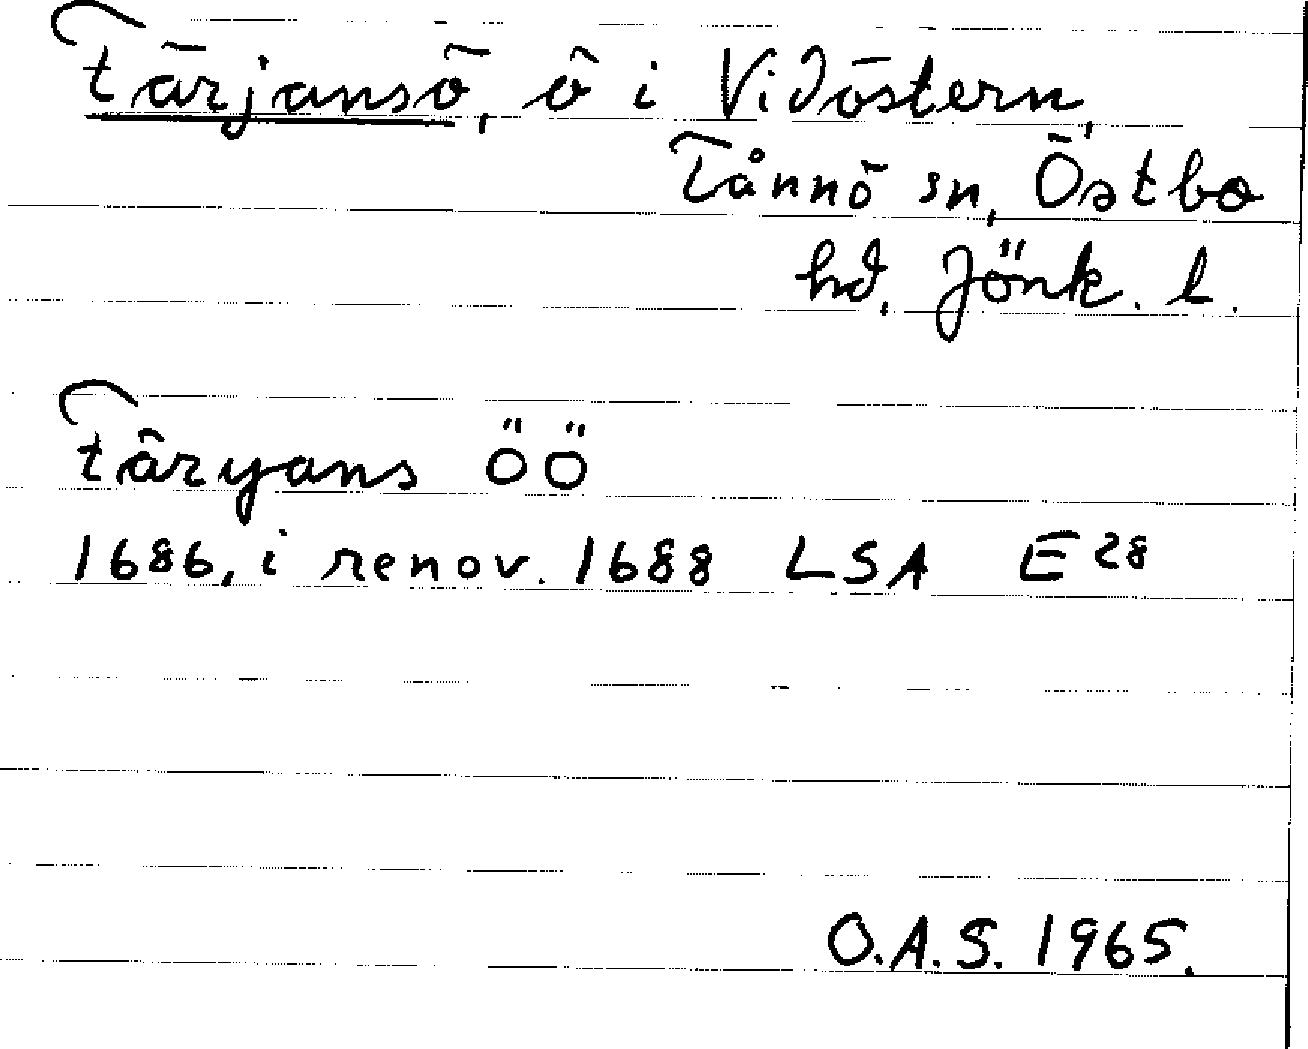 Tärjansö, ö i Vidöstern,
Tånnö sn, Östbo
hd, Jönk. l.
Täryans ÖÖ
1686, i renov. 1688 LSA E28
O.A.S. 1965.